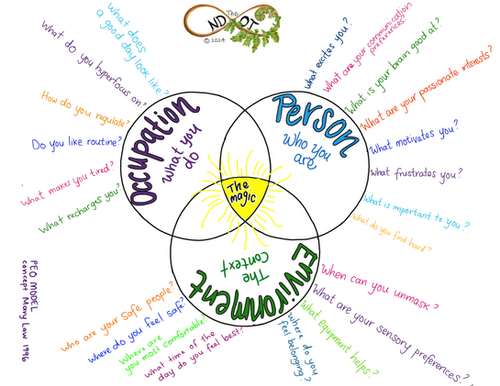 The
ND OT
© 2024
what does
a good day look like?
what do you hyperfocus on?
How do you regulate?
Do you like routine?
what makes you tired?
what recharges you?
what excites you?
what are your communication
preferences?
what is your brain good at?
what are your passionate interests?
what motivates you?
what frustrates you?
what is important to you?
what do you find hard?
Occupation
what you
do
Person
who you
are
The
magic
Environment
The
Context
who are your safe people?
where do you feel safe?
where are
you most comfortable?
what time of the
day do you feel best?
where do you
feel belonging?
what equipment helps?
what are your sensory preferences?
when can you unmask?
PEO MODEL
concept Mary Law 1996